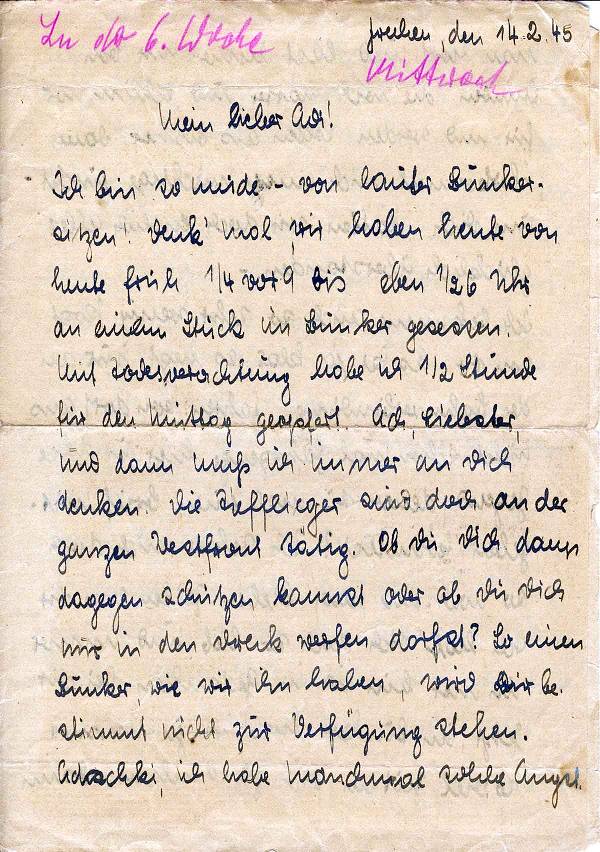 In der 6. Woche
Frechen, den 14.2.45
Mittwoch
Mein lieber Adi!
Ich bin so müde - von lauter Bunker-
sitzen! Denk' mal, wir haben heute von
heute früh 1/4 vor 9 bis eben 1/2 6 Uhr
an einem Stück im Bunker gesessen!
Mit Todesverachtung habe ich 1/2 Stunde
für den Mittag geopfert. Ach, Liebster,
und dann muß ich immer an Dich
denken. Die Tiefflieger sind doch an der
ganzen Westfront tätig. Ob Du Dich dann
dagegen schützen kannst oder ob Du Dich
nur in den Dreck werfen darfst? So einen
Bunker, wie wir ihn haben, wird Dir be-
stimmt nicht zur Verfügung stehen.
ich habe manchmal solche Angst.